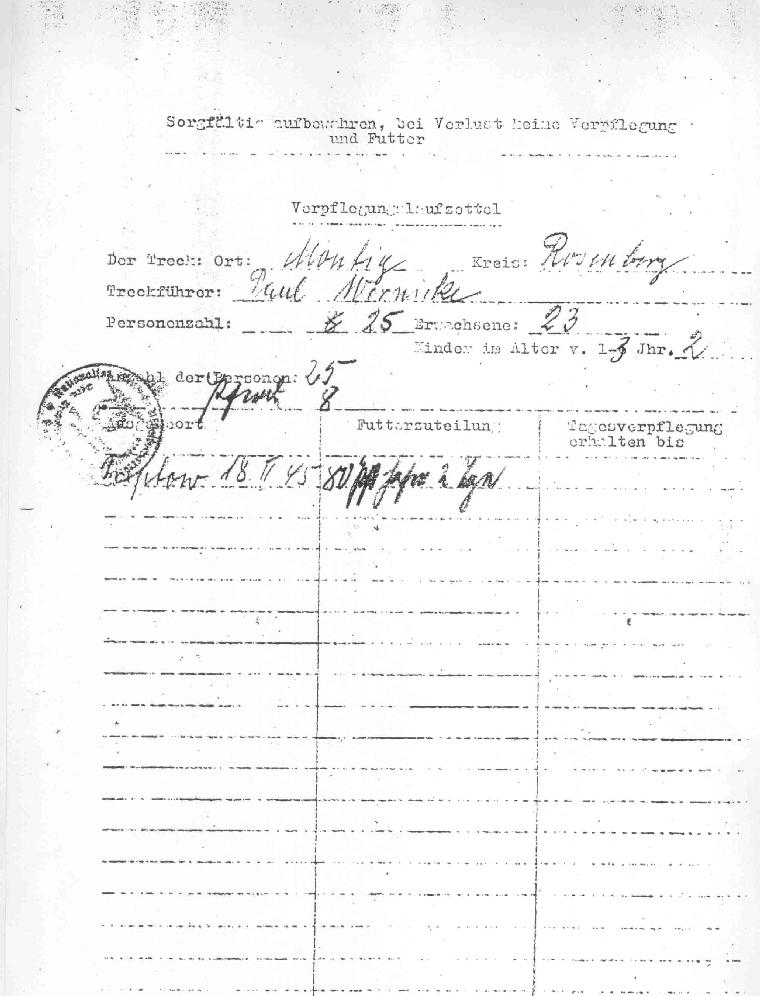 Sorgfältig aufbewahren, bei Verlust keine Verpflegung
und Futter
Verpflegungslaufzettel
Der Treck: Ort: Montig Kreis: Rosenberg
Treckführer: Paul Wernicke
Personenzahl: 25 Erwachsene: 23
Kinder im Alter v. 1-3 Jhr. 2
Anzahl der Personen: 25
Pferde 8
Ausgabeort Futterzuteilung Tagesverpflegung
erhalten bis
Treptow 18 II 45 80